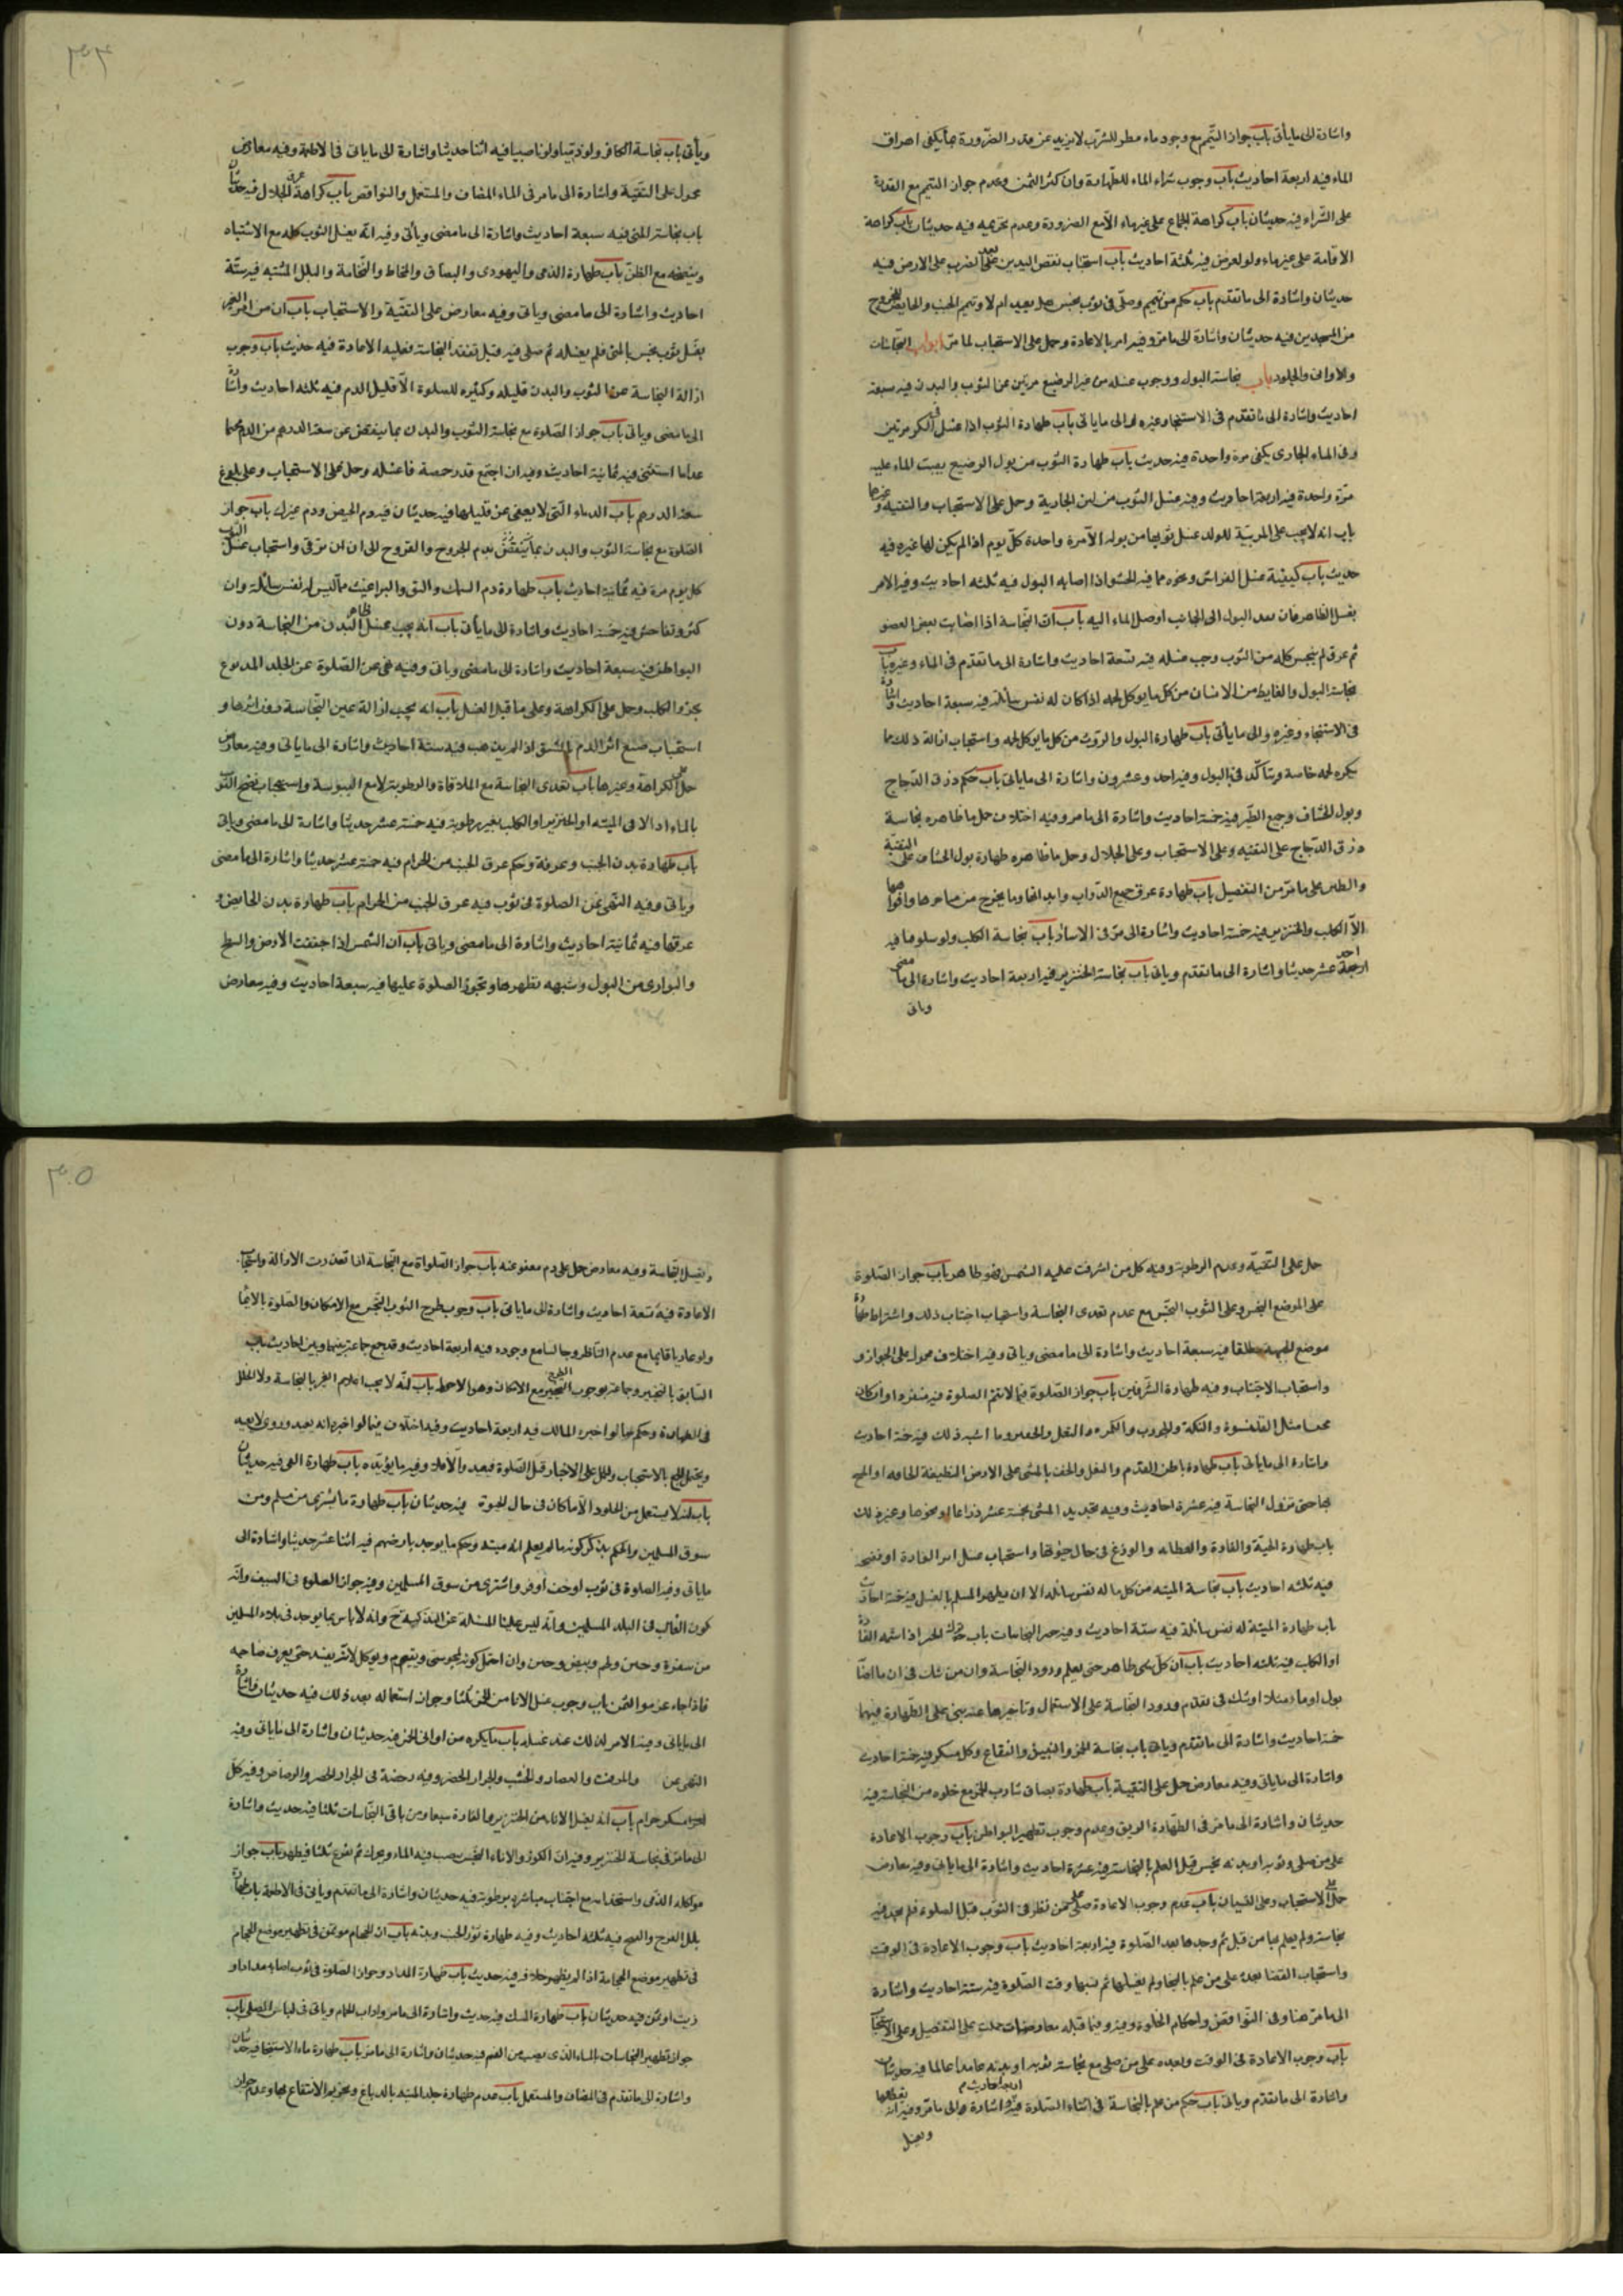 واشارة الى ما يأتى باب جواز التيمم مع وجود ماء مضطر للشرب لا يزيد عن قدر الضرورة بما يكفى اصراف
الماء فيه اربعة احاديث باب وجوب شراء الماء للطهارة وان كثر الثمن وعدم جواز التيمم مع القدرة
على الشراء فيه حديثان باب كراهة الجماع على غير ماء الا مع الضرورة وعدم تحريمه فيه حديثان باب كراهة
الاقامة على غير ماء ولو لعرض فيه ثلثة احاديث باب استحباب نفض اليدين بعد الضرب على الارض فيه
حديثان واشارة الى ما تقدم باب حكم من تيمم وصلى فى ثوب نجس هل يعيد ام لا وتيمم الجنب والحايض للخروج
من المسجدين فيه حديثان واشارة الى ما مر وفيه امر بالاعادة وحمل على الاستحباب لما مر ابواب النجاسات
والاوانى والجلود باب نجاسة البول ووجوب غسله من غير الرضيع مرتين عن الثوب والبدن فيه سبعة
احاديث واشارة الى ما تقدم فى الاستنجاء وغيره والى ما ياتى باب طهارة الثوب اذا غسل فى الكر مرتين
وفى الماء الجارى يكفى مرة واحدة فيه حديث باب طهارة الثوب من بول الرضيع بصب الماء عليه
مرة واحدة فيه اربعة احاديث وفيه غسل الثوب من لبن الجارية وحمل على الاستحباب والتقية وغيرها
باب انه لا يجب على المربية للولد غسل ثوبها من بوله الا مرة واحدة كل يوم اذا لم يكن لها غيره فيه
حديث باب كيفية غسل الفراش ونحوه مما فيه الحشو اذا اصابه البول فيه ثلثه احاديث وفيه الامر
بغسل الظاهر فان نفد البول الى الجانب اوصل الماء اليه باب ان النجاسة اذا اصابت بعض العضو
ثم عرق لم ينجس كله من الثوب وجب غسله فيه تسعة احاديث واشارة الى ما تقدم فى الماء وغيره باب
نجاسة البول والغايط من الانسان من كل ما يوكل لحمه اذا كان له نفس سائلة فيه سبعة احاديث واشارة
فى الاستنجاء وغيره والى ما يأتى باب طهارة البول والروث من كل ما يوكل لحمه واستحباب ازالة ذلك مما
يكره لحمه خاصة ويتأكد فى البول وفيه احد وعشرون واشارة الى ما ياتى باب حكم ذرق الدجاج
وبول الخشاف وجميع الطير فيه خمسة احاديث واشارة الى ما مر وفيه اختلاف حمل ما ظاهره نجاسة
ذرق الدجاج على التقية وعلى الاستحباب وعلى الجلال وحمل ما ظاهره طهارة بول الخشاف على التقية
والطير على ما مر من التفصيل باب طهارة عرق جميع الدواب وابدانها وما يخرج من مناخرها وافواهها
الا الكلب والخنزير فيه خمسة احاديث واشارة الى ما مر فى الاسار باب نجاسة الكلب ولو سلوقيا فيه
احد عشر حديثا واشارة الى ما تقدم وياتى باب نجاسة الخنزير فيه اربعة احاديث واشارة الى ما مضى
وياتى
ويأتى باب نجاسة الكافر ولو ذميا ولو ناصبيا فيه اثنا حديثا واشارة الى ما ياتى فى الاطعمة وفيه معارض
محمول على التقية واشارة الى ما مر فى الماء المضاف والمستعمل والنواقض باب كراهة عرق الجلال فيه حديثان
باب نجاسة المنى فيه سبعة احاديث واشارة الى ما مضى ويأتى وفيه انه يغسل الثوب كله مع الاشتباه
وينضحه مع الظن باب طهارة المذى والودى والبصاق والمخاط والنخامة والبلل المشتبه فيه ستة
احاديث واشارة الى ما مضى وياتى وفيه معارض على التقية والاستحباب باب ان من امر الغير
بغسل ثوب نجس بالمنى فلم يغسله ثم صلى فيه قبل تفقد النجاسة فعليه الاعادة فيه حديث باب وجوب
ازالة النجاسة عن الثوب والبدن قليله وكثيره للصلوة الا قليل الدم فيه ثلثه احاديث واشارة
الى ما مضى وياتى باب جواز الصلوة مع نجاسة الثوب والبدن بما ينقص عن سعة الدرهم من الدم مجتمعا
عدا ما استثنى فيه ثمانية احاديث وفيه ان اجتمع قدر حمصة فاغسله وحمل على الاستحباب وعلى بلوغ
سعة الدرهم باب الدماء التى لا يعفى عن قليلها فيه حديثان فيه دم الحيض ودم غيرك باب جواز
الصلوة مع نجاسة الثوب والبدن بما يشق بدم الجروح والقروح الى ان ترقى واستحباب غسل الثوب
كل يوم مرة فيه ثمانية احاديث باب طهارة دم السمك والبق والبراغيث مما ليس له نفس سائلة وان
كثر وتفاحش فيه خمسة احاديث واشارة الى ما يأتى باب انه يجب غسل ظاهر البدن من النجاسة دون
البواطن فيه سبعة احاديث واشارة الى ما مضى وياتى وفيه نهى عن الصلوة عن الجلد المدبوغ
بخرؤ الكلب وحمل على الكراهة وعلى ما قبل الغسل باب انه يجب ازالة عين النجاسة دون اثرها و
استحباب صبغ اثر الدم بمشق اذا لم يذهب فيه ستة احاديث واشارة الى ما ياتى وفيه معارض
حمل على الكراهة وغيرها باب تعدى النجاسة مع الملاقاة والرطوبة لا مع اليبوسة واستحباب نضح الثوب
بالماء اذا لاقى الميته او الخنزير او الكلب بغير رطوبة فيه خمسة عشر حديثا واشارة الى ما مضى وياتى
باب طهارة بدن الجنب وعرقه وحكم عرق الجنب من الحرام فيه خمسة عشر حديثا واشارة الى ما مضى
وياتى وفيه النهى عن الصلوة فى ثوب فيه عرق الجنب من الحرام باب طهارة بدن الحائض و
عرقها فيه ثمانية احاديث واشارة الى ما مضى وياتى باب ان الشمس اذا جففت الارض والسطح
والبوارى من البول وشبهه تطهرها وتجوز الصلوة عليها فيه سبعة احاديث وفيه معارض
حمل على التقية وعدم الرطوبة وفيه كل من اشرقت عليه الشمس فهو طاهر باب جواز الصلوة
على الموضع النجس وعلى الثوب النجس مع عدم تعدى النجاسة واستحباب اجتناب ذلك واشتراط طهارة
موضع الجبهة مطلقا فيه سبعة احاديث واشارة الى ما مضى وياتى وفيه اختلاف محمول على الجواز و
واستحباب الاجتناب وفيه طهارة باب جواز الصلوة فيما لا تتم الصلوة فيه منفردا وان كان
نجسا مثل القلنسوة والتكة والجورب والكمره والنعل والخفين وما اشبه ذلك فيه خمسة احاديث
واشارة الى ما ياتى باب طهارة باطن القدم والنعل والخف بالمشى على الارض النظيفة الجافه او المسح
بها حتى تزول النجاسة فيه عشرة احاديث وفيه تحديد المشى بخمسة عشر ذراعا او نحوها وغير ذلك
باب طهارة الحية والفارة والعظايه والوزغ فى حال حيوتها واستحباب غسل اثر الفارة او نضحه
فيه ثلثه احاديث باب نجاسة الميته من كل ما له نفس سائله الا ان يطهر المسلم بالغسل فيه خمسة احاديث
باب طهارة الميتة له نفس سائلة فيه ستة احاديث وفيه حصر النجاسات باب الخبز اذا شمه الفارة
او الكلب فيه ثلثه احاديث باب ان كل شى طاهر حتى يعلم ورود النجاسة وان من شك فى ان ما اصابه
بول او ماء مثلا او شك فى تقدم ورود النجاسة على الاستعمال وتاخيرها عنه يبنى على الطهارة فيهما
خمسة احاديث واشارة الى ما تقدم وياتى باب نجاسة الخمر والنبيذ والفقاع وكل مسكر فيه خمسة احاديث
واشارة الى ما ياتى وفيه معارض حمل على التقية باب طهارة بصاق شارب الخمر مع خلوه من النجاسة فيه
حديثان واشارة الى ما مر فى الطهارة الريق وعدم وجوب تطهير البواطن باب وجوب الاعادة
على من صلى وثوبه او بدنه نجس قبل العلم بالنجاسة فيه عشرة احاديث واشارة الى ما ياتى وفيه معارض
حمل على الاستحباب وعلى النسيان باب عدم وجوب الاعادة على من نظر فى الثوب قبل الصلوة فلم يجد فيه
نجاسة ولم يعلم بها من قبل ثم وجدها بعد الصلوة فيه اربعة احاديث باب وجوب الاعادة فى الوقت
واستحباب القضا بعده على من علم بالنجاسة ولم يغسلها ثم نسيها وقت الصلوة فيه ستة احاديث واشارة
الى ما مر هنا وفى النواقض واحكام الخلوة وفيه وفيما قبله معارضات حملت على التفصيل وعلى الاستحباب
باب وجوب الاعادة فى الوقت وبعده على من صلى مع نجاسة ثوبه او بدنه عامدا عالما فيه حديثان
واشارة الى ما تقدم وياتى باب حكم من علم بالنجاسة فى اثناء الصلوة فيه اربعة احاديث واشارة الى ما مر وفيه انه يقطعها
ويغسل
ويغسل النجاسة وفيه معارض حمل على دم معفو عنه باب جواز الصلواة مع النجاسة اذا تعذرت الازالة واستحباب
الاعادة فيه تسعة احاديث واشارة الى ما ياتى باب وجوب طرح الثوب النجس مع الامكان والصلوة بالايماء
ولو عاريا قايما مع عدم الناظر وجالسا مع وجوده فيه اربعة احاديث وقد جمع جماعة بينهما وبين احاديث باب
السابق بالتخيير وجماعة بوجوب مع الامكان وهو الاحوط باب انه لا يجب اعلام الغير بالنجاسة ولا الخلل
فى الطهارة وحكم ما لو اخبره المالك فيه اربعة احاديث وفيه اختلاف فيما لو اخبره انه يعيد وروى لا يعيد
ويحتمل الجمع بالاستحباب والحمل على الاخبار قبل الصلوة فيعيد والا فلا وفيه ما يؤيده باب طهارة القى فيه حديثان
باب انه لا يستعمل من الجلود الا ما كان فى حال الحيوة فيه حديثان باب طهارة ما يشترى من مسلم ومن
سوق المسلمين والحكم بذكوته ما لم يعلم انه ميته وحكم ما يوجد بارضهم فيه اثنا عشر حديثا واشارة الى
ما ياتى وفيه الصلوة فى ثوب او خف او فرو اشترى من سوق المسلمين وفيه جواز الصلوة فى السيف وانه
كون الغالب فى البلد المسلمين وانه ليس علينا المسئلة عن التذكية ح وانه لا باس بما يوجد فى بلاد المسلمين
من سفرة وخبز ولحم وبيض وجبن وان احتمل كونه لمجوسى ويقوم ويوكل لانه يفسد حتى يعرف صاحبه
فاذا جاء غرموا الثمن باب وجوب غسل الانا من الخمر ثلثا وجواز استعماله بعد ذلك فيه حديثان واشارة
الى ما ياتى وفيه الامر بدلك عند غسله باب ما يكره من اوانى الخمر فيه حديثان واشارة الى ما ياتى وفيه
النهى عن والمزفت والخشب والجرار الخضر وفيه رخصة فى الجرار الخضر والرصاص وفيه كل
مسكر حرام باب انه يغسل الاناء من الخنزير والفارة سبعا ومن باقى النجاسات ثلثا فيه حديث واشارة
الى ما مر فى نجاسة الخنزير وفيه ان الكوز والاناء النجس يصب فيه الماء ويحرك ثم يفرغ ثلثا فيطهر باب جواز
مواكلة الذمى واستخدامه مع اجتناب مباشرته برطوبة فيه حديثان واشارة الى ما تقدم ويأتى فى الاطعمة باب طهارة
بلل الفرج والقيح فيه ثلثه احاديث وفيه طهارة ثوب الجنب وبدنه باب ان الحجام مؤتمن فى تطهير موضع الحجامة
فى تطهير موضع الحجامة اذا لم يظهر خلافه فيه حديث باب طهارة المداد وجواز الصلوة فى ثوب اصابه مداد او
زيت او سمن فيه حديثان باب طهارة المسك فيه حديث واشارة الى ما مر واداب الحمام وياتى فى لباس المصلى باب
جواز تطهير النجاسات بالماء الذى يصب من الفم فيه حديثان واشارة الى ما مر باب طهارة ماء الاستنجا فيه حديثان
واشارة الى ما تقدم فى المضاف والمستعمل باب عدم طهارة جلد الميته بالدباغ وتحريم الانتفاع بها وعدم جواز